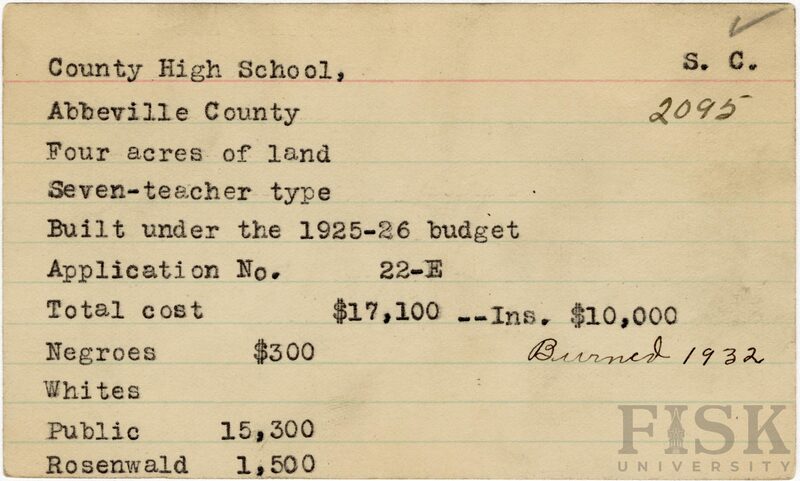 County High School, S. C.
Abbeville County 2095
Four acres of land
Seven-teacher type
Built under the 1925-26 budget
Application No. 22-E
Total cost $17,100 --Ins. $10,000
Negroes $300 Burned 1932
Whites
Public 15,300
Rosenwald 1,500
FISK
UNIVERSITY